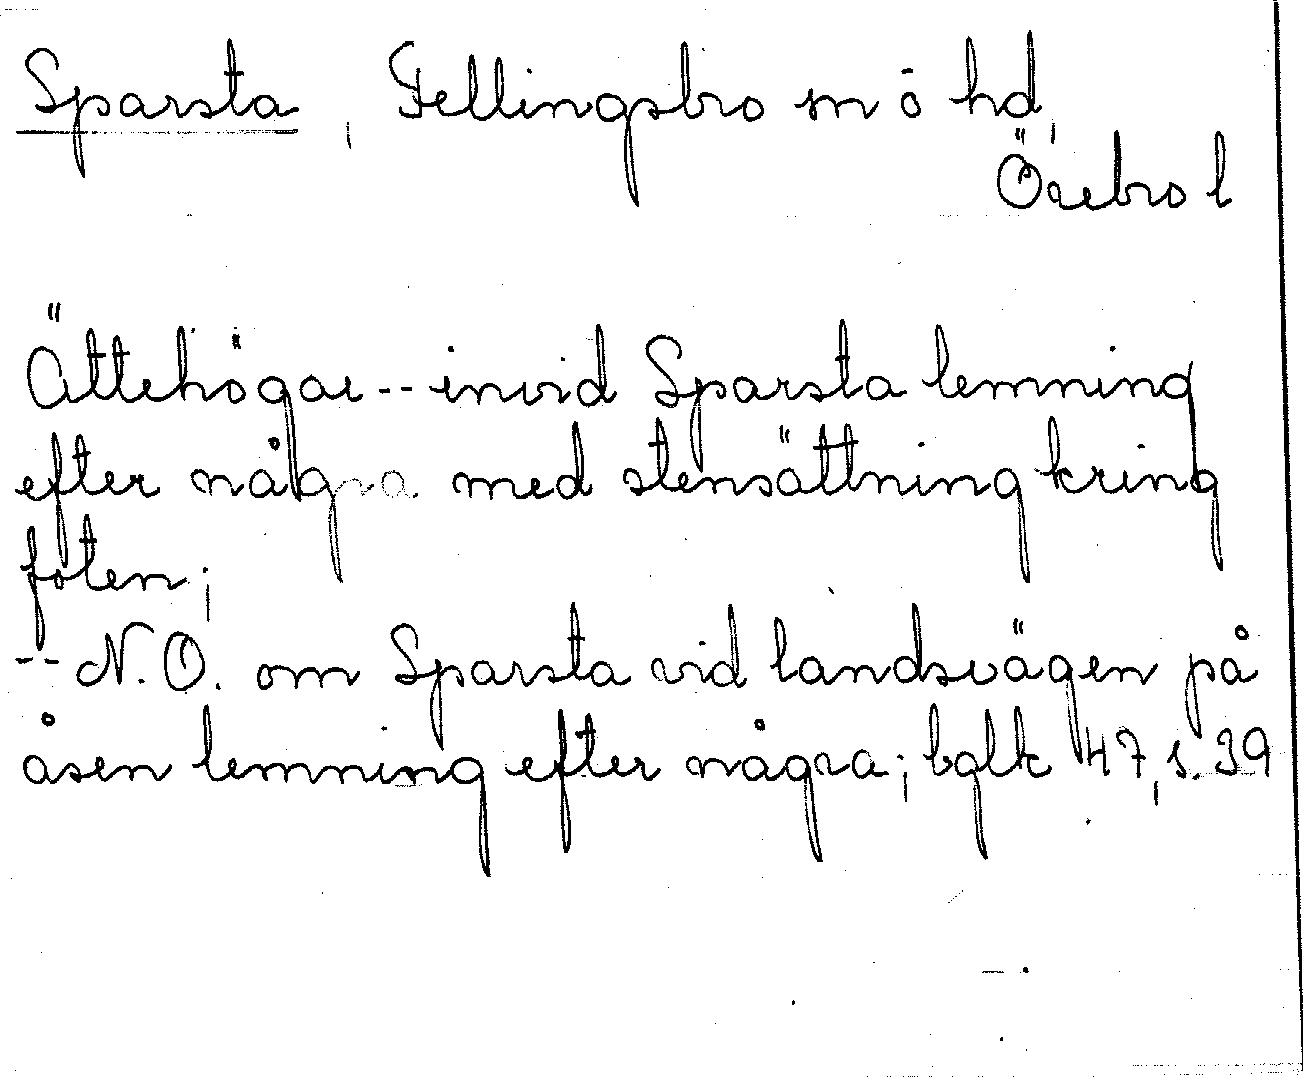 Sparsta, Fellingsbro sn o hd,
Örebro l
Ättehögar -- invid Sparsta lemning
efter några med stensättning kring
foten;
-- N.O. om Sparsta vid landsvägen på
åsen lemning efter några; bglk 47, s. 39